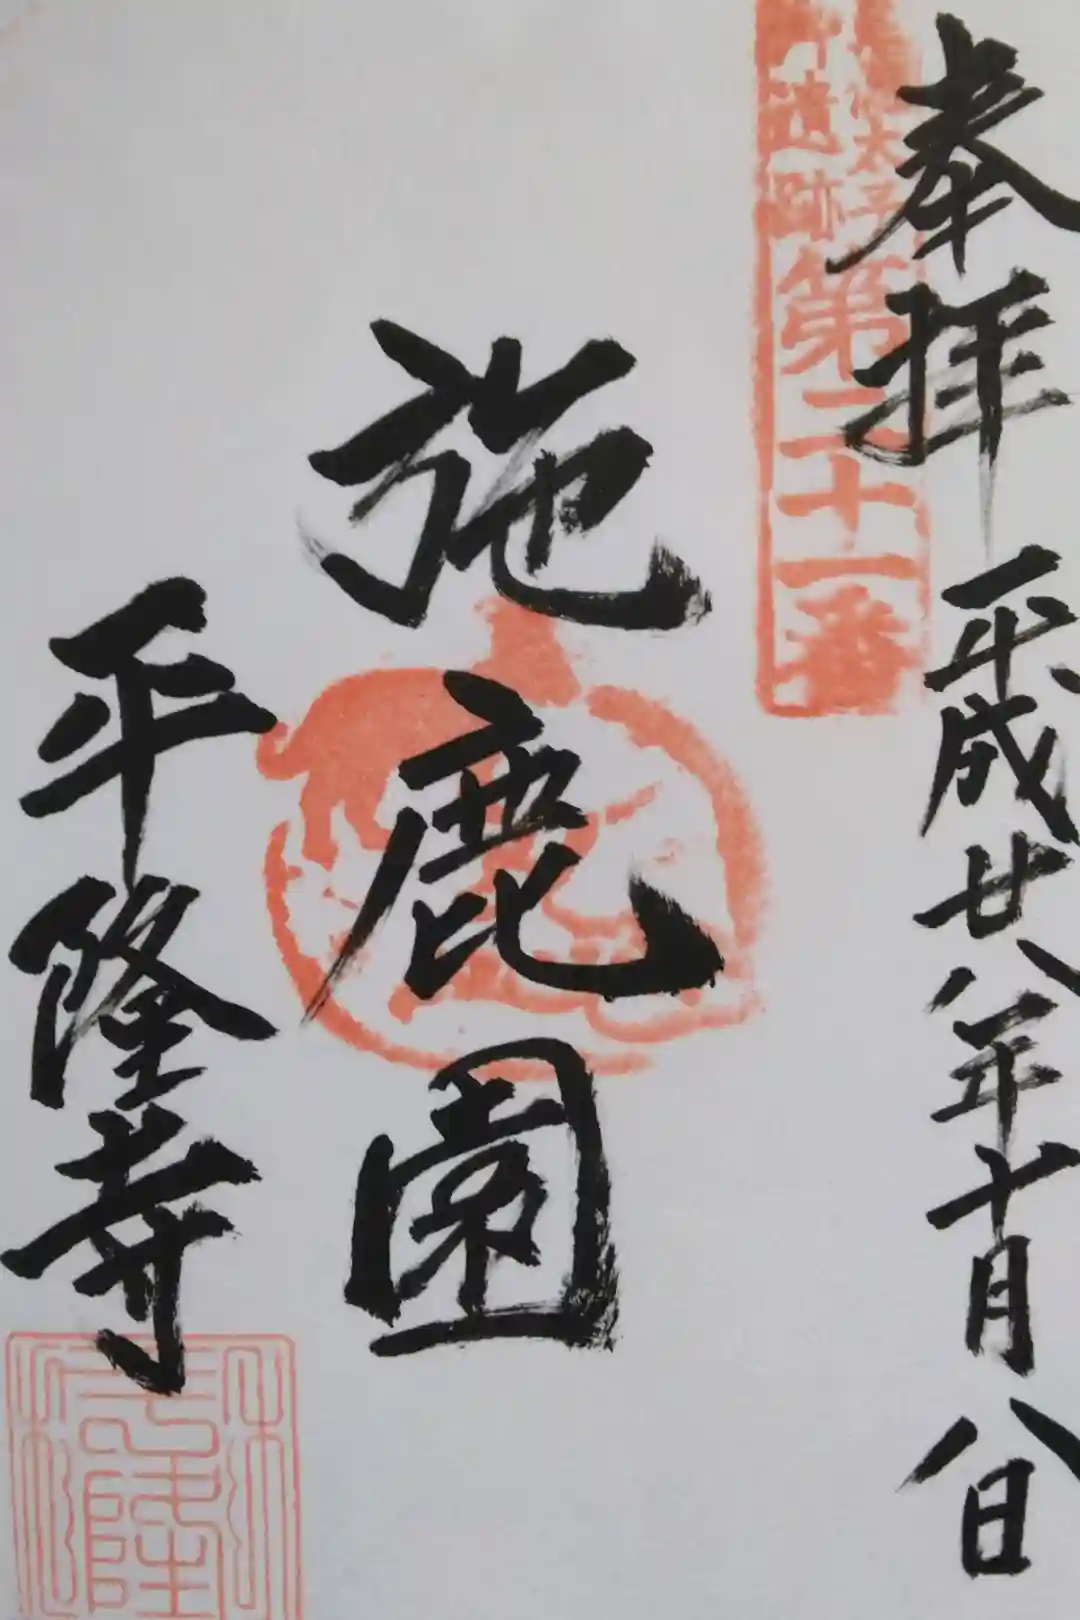 奉拝 平成廿八年十月八日
太子
遺跡
第二十一番
施鹿園
平隆寺